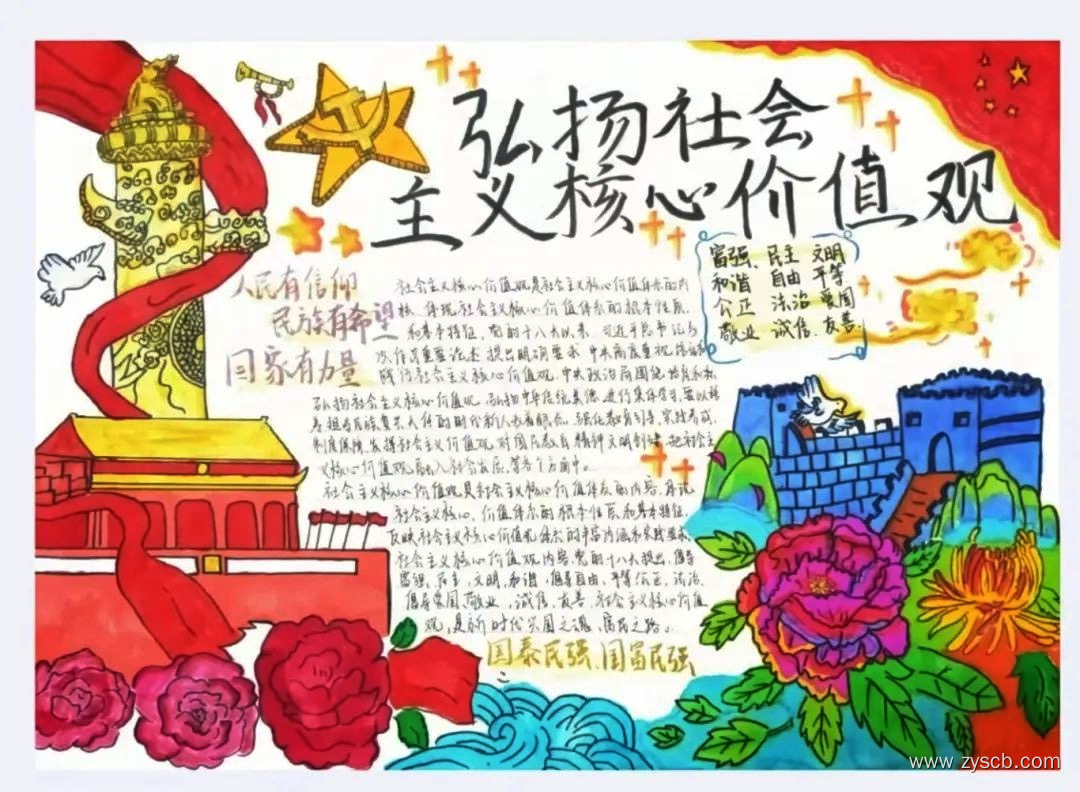 弘扬社会
主义核心价值观
富强、民主 文明
和谐 自由 平等
公正 法治 爱国
敬业 诚信、友善
人民有信仰
民族有希望
国家有力量
社会主义核心价值观是社会主义核心价值体系的内
核、体现社会主义核心价值体系的根本性质
和基本特征，党的十八大以来，习近平总书记多
次作出重要论述 提出明确要求 中央高度重视培育和
践行社会主义核心价值观.中央政治局围绕培育和
弘扬社会主义核心价值观、弘扬中华传统美德 进行集体学习.要以培
养担当民族复兴大任的时代新人为着眼点、强化教育引导、实践养成、
制度保障、发挥社会主义价值观 对国民教育 精神文明创建 把社会主
义核心价值观融入社会发展 等各个方面中。
社会主义核心价值观是社会主义核心价值体系的内容、
社会主义核心、价值体系的根本性质和基本特征，
反映社会主义核心价值观体系的丰富内涵和实践要求，
社会主义核心价值观内容，党的十八大提出，倡导
富强、民主，文明，和谐，倡导自由，平等公正，法治，
倡导爱国、敬业，诚信，友善 社会主义核心价值
观，是新时代兴国之魂，富民之路。
国泰民强、国富民强
www.zyscb.com